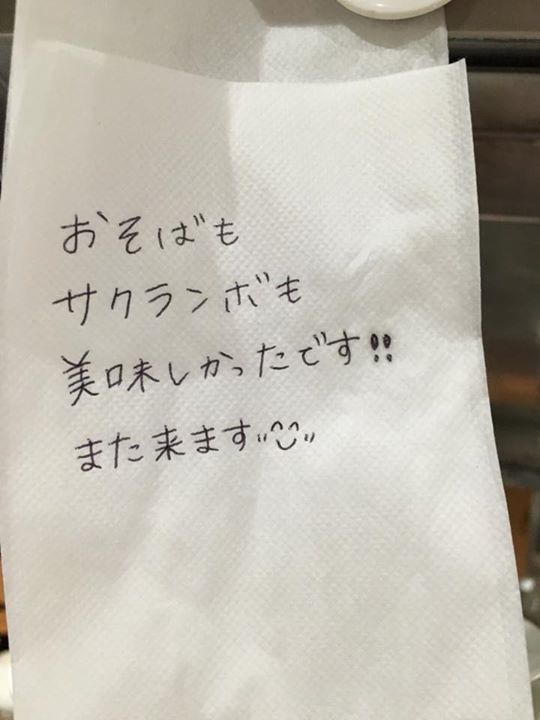 おそばも
サクランボも
美味しかったです!!
また来ます〃^‿^〃